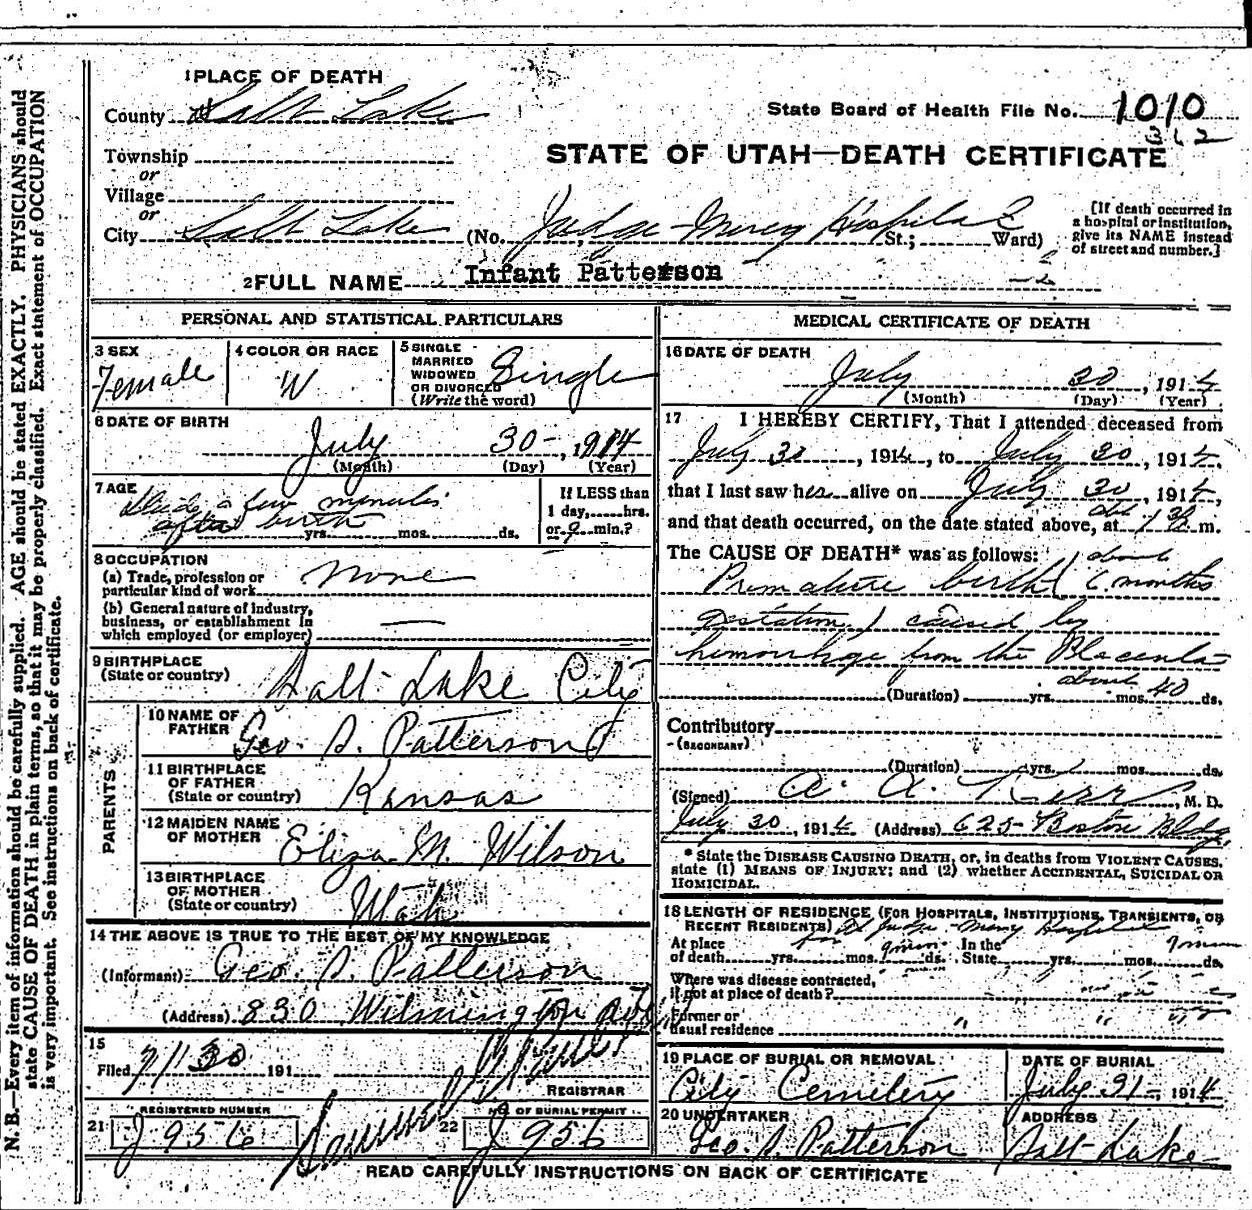 1 PLACE OF DEATH
County Salt Lake
State Board of Health File No. 1010
312
Township
or
Village
or
STATE OF UTAH—DEATH CERTIFICATE
City Salt Lake (No. Judge Mercy Hospital St.; Ward)
[If death occurred in
a hospital or institution,
give its NAME instead
of street and number.]
2 FULL NAME Infant Patterson
PERSONAL AND STATISTICAL PARTICULARS
3 SEX
Female
4 COLOR OR RACE
W
5 SINGLE
MARRIED
WIDOWED
OR DIVORCED
(Write the word)
Single
6 DATE OF BIRTH
July 30 - , 1914
(Month) (Day) (Year)
7 AGE
a few minutes
after birth
yrs. mos. ds.
If LESS than
1 day, hrs.
or 9 min.?
8 OCCUPATION
(a) Trade, profession or
particular kind of work None
(b) General nature of industry,
business, or establishment in
which employed (or employer) —
9 BIRTHPLACE
(State or country) Salt Lake City
PARENTS
10 NAME OF
FATHER Geo. S. Patterson
11 BIRTHPLACE
OF FATHER
(State or country) Kansas
12 MAIDEN NAME
OF MOTHER Eliza M. Wilson
13 BIRTHPLACE
OF MOTHER
(State or country) Utah
14 THE ABOVE IS TRUE TO THE BEST OF MY KNOWLEDGE
(Informant) Geo. S. Patterson
(Address) 830 Wilmington Ave
15
Filed 7/30 191
REGISTRAR
REGISTERED NUMBER
21 J 956
NO. OF BURIAL PERMIT
22 J 956
MEDICAL CERTIFICATE OF DEATH
16 DATE OF DEATH
July 30 , 1914
(Month) (Day) (Year)
17 I HEREBY CERTIFY, That I attended deceased from
July 30 , 1914, to July 30 , 1914,
that I last saw her alive on July 30 , 1914,
and that death occurred, on the date stated above, at 1 30 m.
The CAUSE OF DEATH* was as follows:
Premature birth (about 6 months
gestation) caused by
hemorrhage from the Placenta
(Duration) yrs. about mos. 40 ds.
Contributory
(SECONDARY)
(Duration) yrs. mos. ds.
(Signed) A. A. Kerr , M. D.
July 30 , 1914 (Address) 625 Boston Bldg.
* State the DISEASE CAUSING DEATH, or, in deaths from VIOLENT CAUSES,
state (1) MEANS OF INJURY; and (2) whether ACCIDENTAL, SUICIDAL OR
HOMICIDAL.
18 LENGTH OF RESIDENCE (FOR HOSPITALS, INSTITUTIONS, TRANSIENTS, OR
RECENT RESIDENTS) At Judge Mercy Hospital
At place for 9 min. In the 9 min
of death yrs. mos. ds. State yrs. mos. ds.
Where was disease contracted,
if not at place of death?
Former or
usual residence " " "
19 PLACE OF BURIAL OR REMOVAL
City Cemetery
DATE OF BURIAL
July 31 -, 1914
20 UNDERTAKER
Geo. S. Patterson
ADDRESS
Salt Lake
READ CAREFULLY INSTRUCTIONS ON BACK OF CERTIFICATE
N. B.—Every item of information should be carefully supplied. AGE should be stated EXACTLY. PHYSICIANS should
state CAUSE OF DEATH in plain terms, so that it may be properly classified. Exact statement of OCCUPATION
is very important. See instructions on back of certificate.